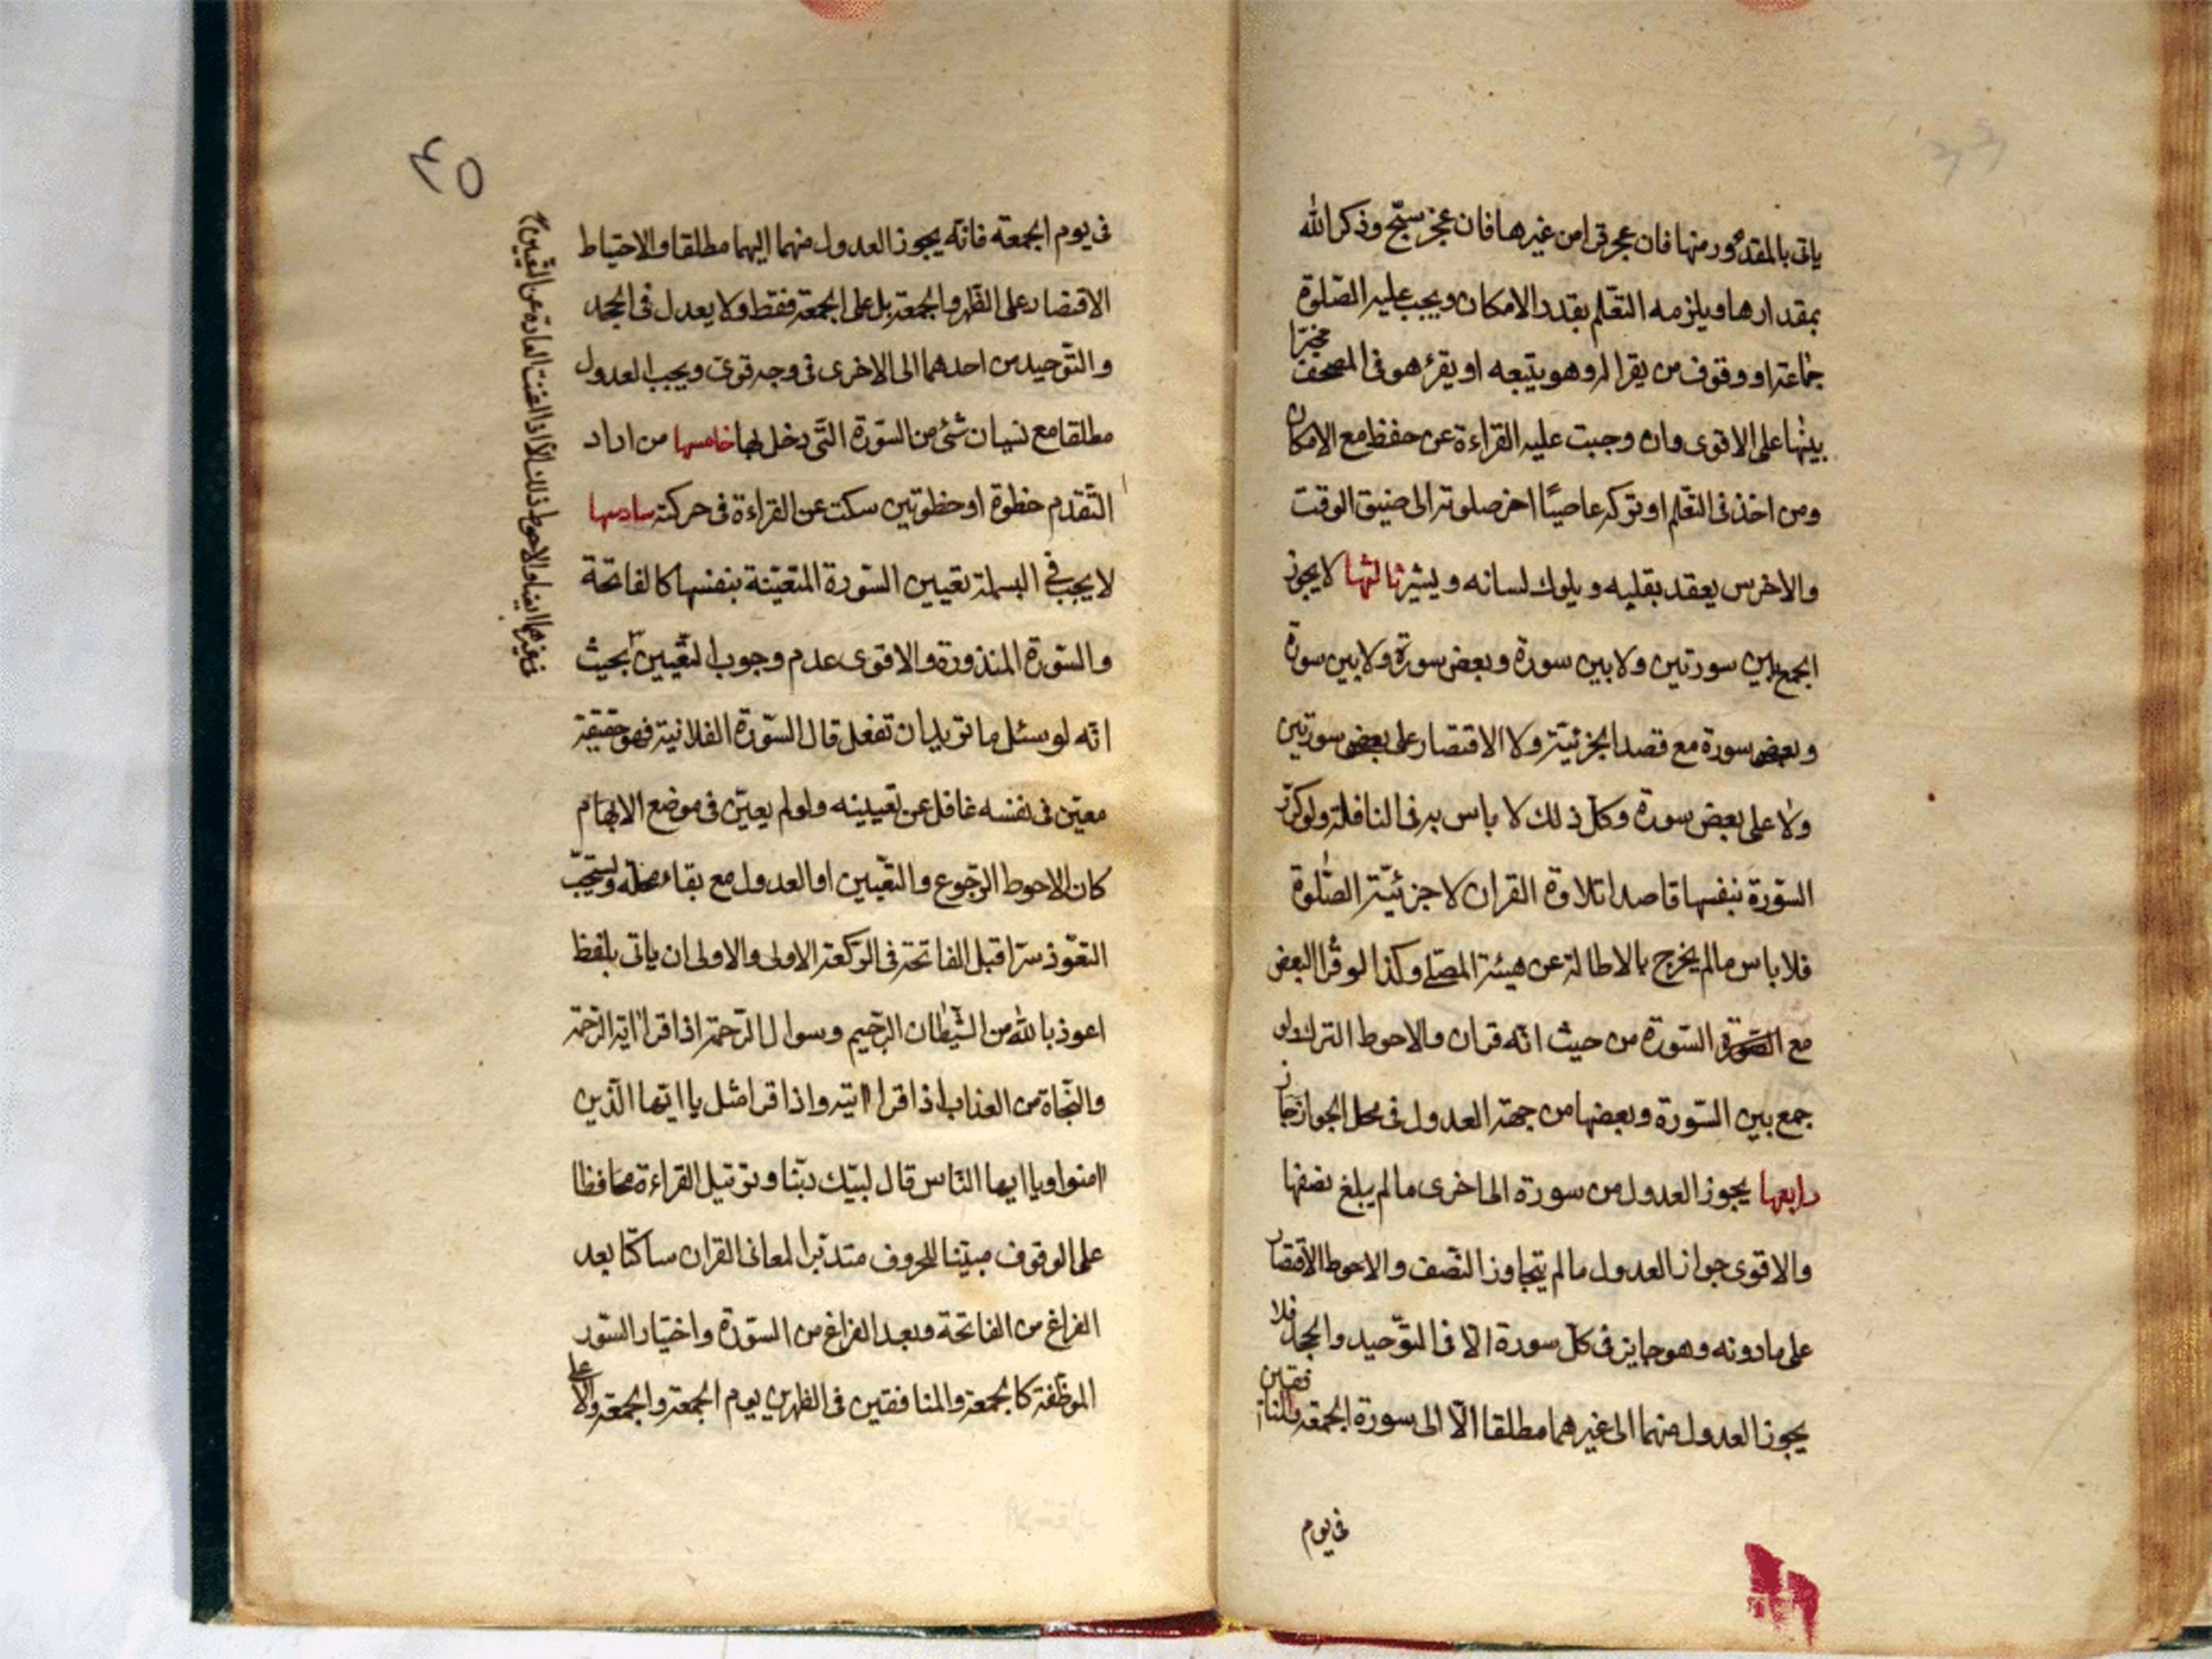 ياتى بالمقدور منها فان عجز قرا من غيرها فان عجز سبّح وذكر الله
بمقدارها ويلزمه التعّلم بقدر الامكان ويجب عليه الصّلوة
جماعة او وقوف من يقرا له وهو يتبعه او يقرء هو فى المصحف مخيّرا
بينها على الاقوى وان وجبت عليه القراءة عن حفظ مع الامكان
ومن اخذ فى التعّلم او تركه عاصيًا اخر صلوته الى ضيق الوقت
والاخرس يعقد بقلبه و يلوك لسانه و يشير ثالثها لا يجوز
الجمع بين سورتين ولا بين سورة وبعض سورة ولا بين سورة
وبعض سورة مع قصد الجزئيّة ولا الاقتصار على بعض سورتين
ولا على بعض سورة وكلّ ذلك لا باس به فى النافلة ولو كرّر
السّورة بنفسها قاصدا تلاوة القران لا جزئيّة الصّلوة
فلا باس مالم يخرج بالاطالة عن هيئة المصلّى وكذا لو قرا البعض
مع السّورة من حيث انّه قران والاحوط الترك ولو
جمع بين السّورة وبعضها من جهة العدول فى محل الجواز جاز
رابعها يجوز العدول من سورة الى اخرى مالم يبلغ نصفها
والاقوى جواز العدول مالم يتجاوز النّصف والاحوط الاقتصار
على مادونه وهو جايز فى كلّ سورة الّا فى التوّحيد والجحد فلا
يجوز العدول منهما الى غيرهما مطلقا الّا الى سورة الجمعة والمنافقين
فى يوم
٤٥
فى يوم الجمعة فانّه يجوز العدول منهما اليهما مطلقا والاحتياط
الاقتصار على الظّهر والجمعة بل على الجمعة فقط ولا يعدل فى الجحد
والتّوحيد من احدهما الى الاخرى فى وجه قوىّ ويجب العدول
مطلقا مع نسيان شئ من السّورة التّى دخل بها خامسها من اراد
التّقدم خطوة او خطوتين سكت عن القراءة فى حركته سادسها
لا يجب فى البسملة تعيين السّورة المتعيّنة بنفسها كالفاتحة
والسّورة المنذورة والاقوى عدم وجوب التّعيين بحيث
انّه لو سئل ما تريد ان تفعل قال السّورة الفلانية فهو حقيقة
معيّن فى نفسه غافل عن تعيينه ولو لم يعيّن فى موضع الابهام
كان الاحوط الرّجوع والتّعيين او العدول مع بقاء محله ويستحبّ
التعّوذ سرّا قبل الفاتحة فى الرّكعة الاولى والاولى ان ياتى بلفظ
اعوذ بالله من الشّيطان الرّجيم وسوال الرّحمة اذا قرا اية الرّحمة
والنّجاة من العذاب اذا قرا ايته واذا قرا مثل يا ايّها الّذين
امنوا ويا ايها النّاس قال لبّيك ربّنا وترتيل القراءة محافظا
على الوقوف مبيّنا للحروف متدبّرا لمعانى القران ساكتا بعد
الفراغ من الفاتحة وبعد الفراغ من السّورة واختيار السّور
الموظّفة كالجمعة والمنافقين فى الظهرين يوم الجمعة والجمعة والاعلى